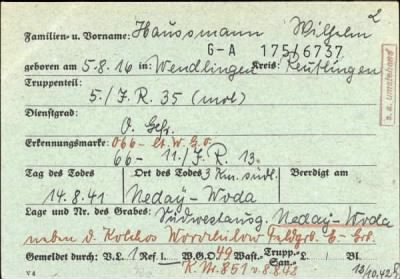 2
Familien- u. Vorname: Haussmann Wilhelm
G-A 175/6737
geboren am 5.8.16 in: Wendlingen Kreis: Reutlingen
Truppenteil: 5./J.R. 35 (mot)
Dienstgrad: O. Gefr.
Erkennungsmarke: 066- lt. W.G.O.
66- 11./J.R. 13.
s. a. umstehend
Tag des Todes Ort des Todes 3 km südl. Beerdigt am
14.8.41 Neday-Woda
Lage und Nr. des Grabes: Südwestausg. Neday-Woda
neben d. Kolchos E-Grb.
Gemeldet durch: V.L. 1 Ref. W.G.O. 49 Wast.- Trupp.- San.- L. / Bl.
K. Nr. 851 v. 8.8.42
V 4
13/10.42